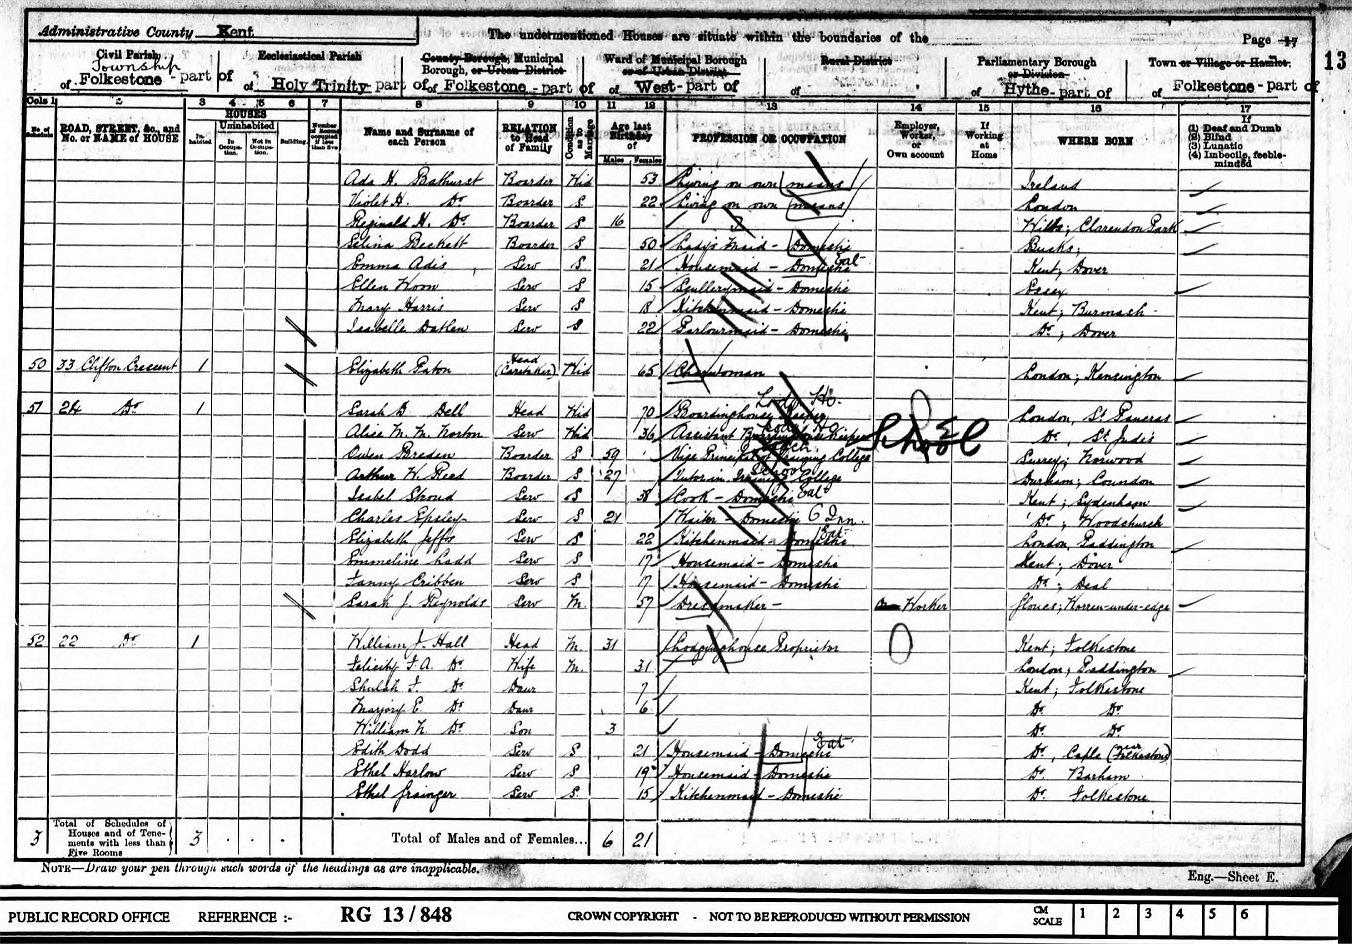 Administrative County Kent
The undermentioned Houses are situate within the boundaries of the
Page 17
13
Civil Parish Township of Folkestone - part of
Ecclesiastical Parish of Holy Trinity - part of
County Borough, Municipal Borough, or Urban District of Folkestone - part of
Ward of Municipal Borough or of Urban District of West - part of
Rural District of
Parliamentary Borough or Division of Hythe - part of
Town or Village or Hamlet of Folkestone - part of
Cols 1 2 3 4 5 6 7 8 9 10 11 12 13 14 15 16 17
No. of Schedule
ROAD, STREET, &c., and No. or NAME of HOUSE
HOUSES
Inhabited
Uninhabited
In Occupation.
Not in Occupation.
Building.
Number of Rooms occupied if less than five
Name and Surname of each Person
RELATION to Head of Family
Condition as to Marriage
Age last Birthday of
Males
Females
PROFESSION OR OCCUPATION
Employer, Worker, or Own account
If Working at Home
WHERE BORN
If
(1) Deaf and Dumb
(2) Blind
(3) Lunatic
(4) Imbecile, feeble-minded
Ada H. Bathurst Boarder Wid 53 Living on own means Ireland
Violet H. Do Boarder S 22 Living on own means London
Reginald H. Do Boarder S 16 Wilts; Clarendon Park
Selina Beckett Boarder S 50 Lady's Maid - Domestic Bucks;
Emma Adis Serv S 21 Housemaid - Domestic Kent; Dover
Ellen Moon Serv S 15 Scullerymaid - Domestic Essex
Mary Harris Serv S 18 Kitchenmaid - Domestic Kent; Burmash
Isabella Datlen Serv S 22 Parlourmaid - Domestic Do; Dover
50 33 Clifton Crescent 1 Elizabeth Paton Head (Caretaker) Wid 65 Charwoman London; Kensington
51 24 Do 1 Sarah D Dell Head Wid 70 Boardinghouse Keeper London, St Pancras
Alice M. M. Norton Serv Wid 36 Assistant Boardinghouse Keeper Do, St Jude's
Owen Breden Boarder S 59 Vice Principal of Training College School Surrey; Norwood
Arthur W. Reed Boarder S 27 Tutor in Training College Durham; Coundon
Isabel Stroud Serv S 38 Cook - Domestic Kent; Sydenham
Charles Epsley Serv S 21 Waiter - Domestic Do; Woodchurch
Elizabeth Jeffs Serv S 22 Kitchenmaid - Domestic London, Paddington
Emmeline Ladd Serv S 17 Housemaid - Domestic Kent; Dover
Fanny Cribben Serv S 17 Housemaid - Domestic Do; Deal
Sarah J. Reynolds Serv M. 57 Dressmaker - Worker Glouc; Worren-under-edge
52 22 Do 1 William J. Hall Head M. 31 Lodginghouse Proprietor Kent; Folkestone
Felicity F. A. Do Wife M. 31 London; Paddington
Do Daur 7 Kent; Folkestone
Marjory E. Do Daur 6 Do Do
William N. Do Son 3 Do Do
Edith Dodd Serv S 21 Housemaid - Domestic Do, Caple (near Folkestone)
Ethel Harlow Serv S 19 Housemaid - Domestic Do. Barham
Ethel Grainger Serv S. 15 Kitchenmaid - Domestic Do. Folkestone
3 Total of Schedules of Houses and of Tenements with less than Five Rooms 3 Total of Males and of Females... 6 21
NOTE—Draw your pen through such words of the headings as are inapplicable.
Eng.—Sheet E.
PUBLIC RECORD OFFICE REFERENCE :- RG 13/848 CROWN COPYRIGHT - NOT TO BE REPRODUCED WITHOUT PERMISSION CM SCALE 1 2 3 4 5 6